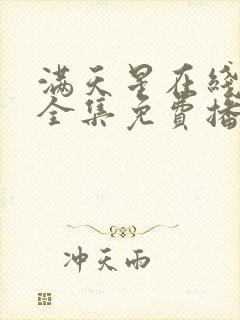 满天星在綫
全集免費播
冲天雨